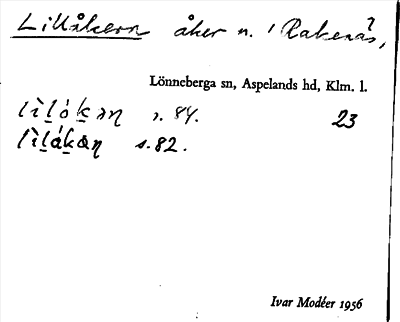 Lillåkern åker n. i Rakenäs?,
Lönneberga sn, Aspelands hd, Klm. l.
s. 84. 23
s. 82.
Ivar Modéer 1956